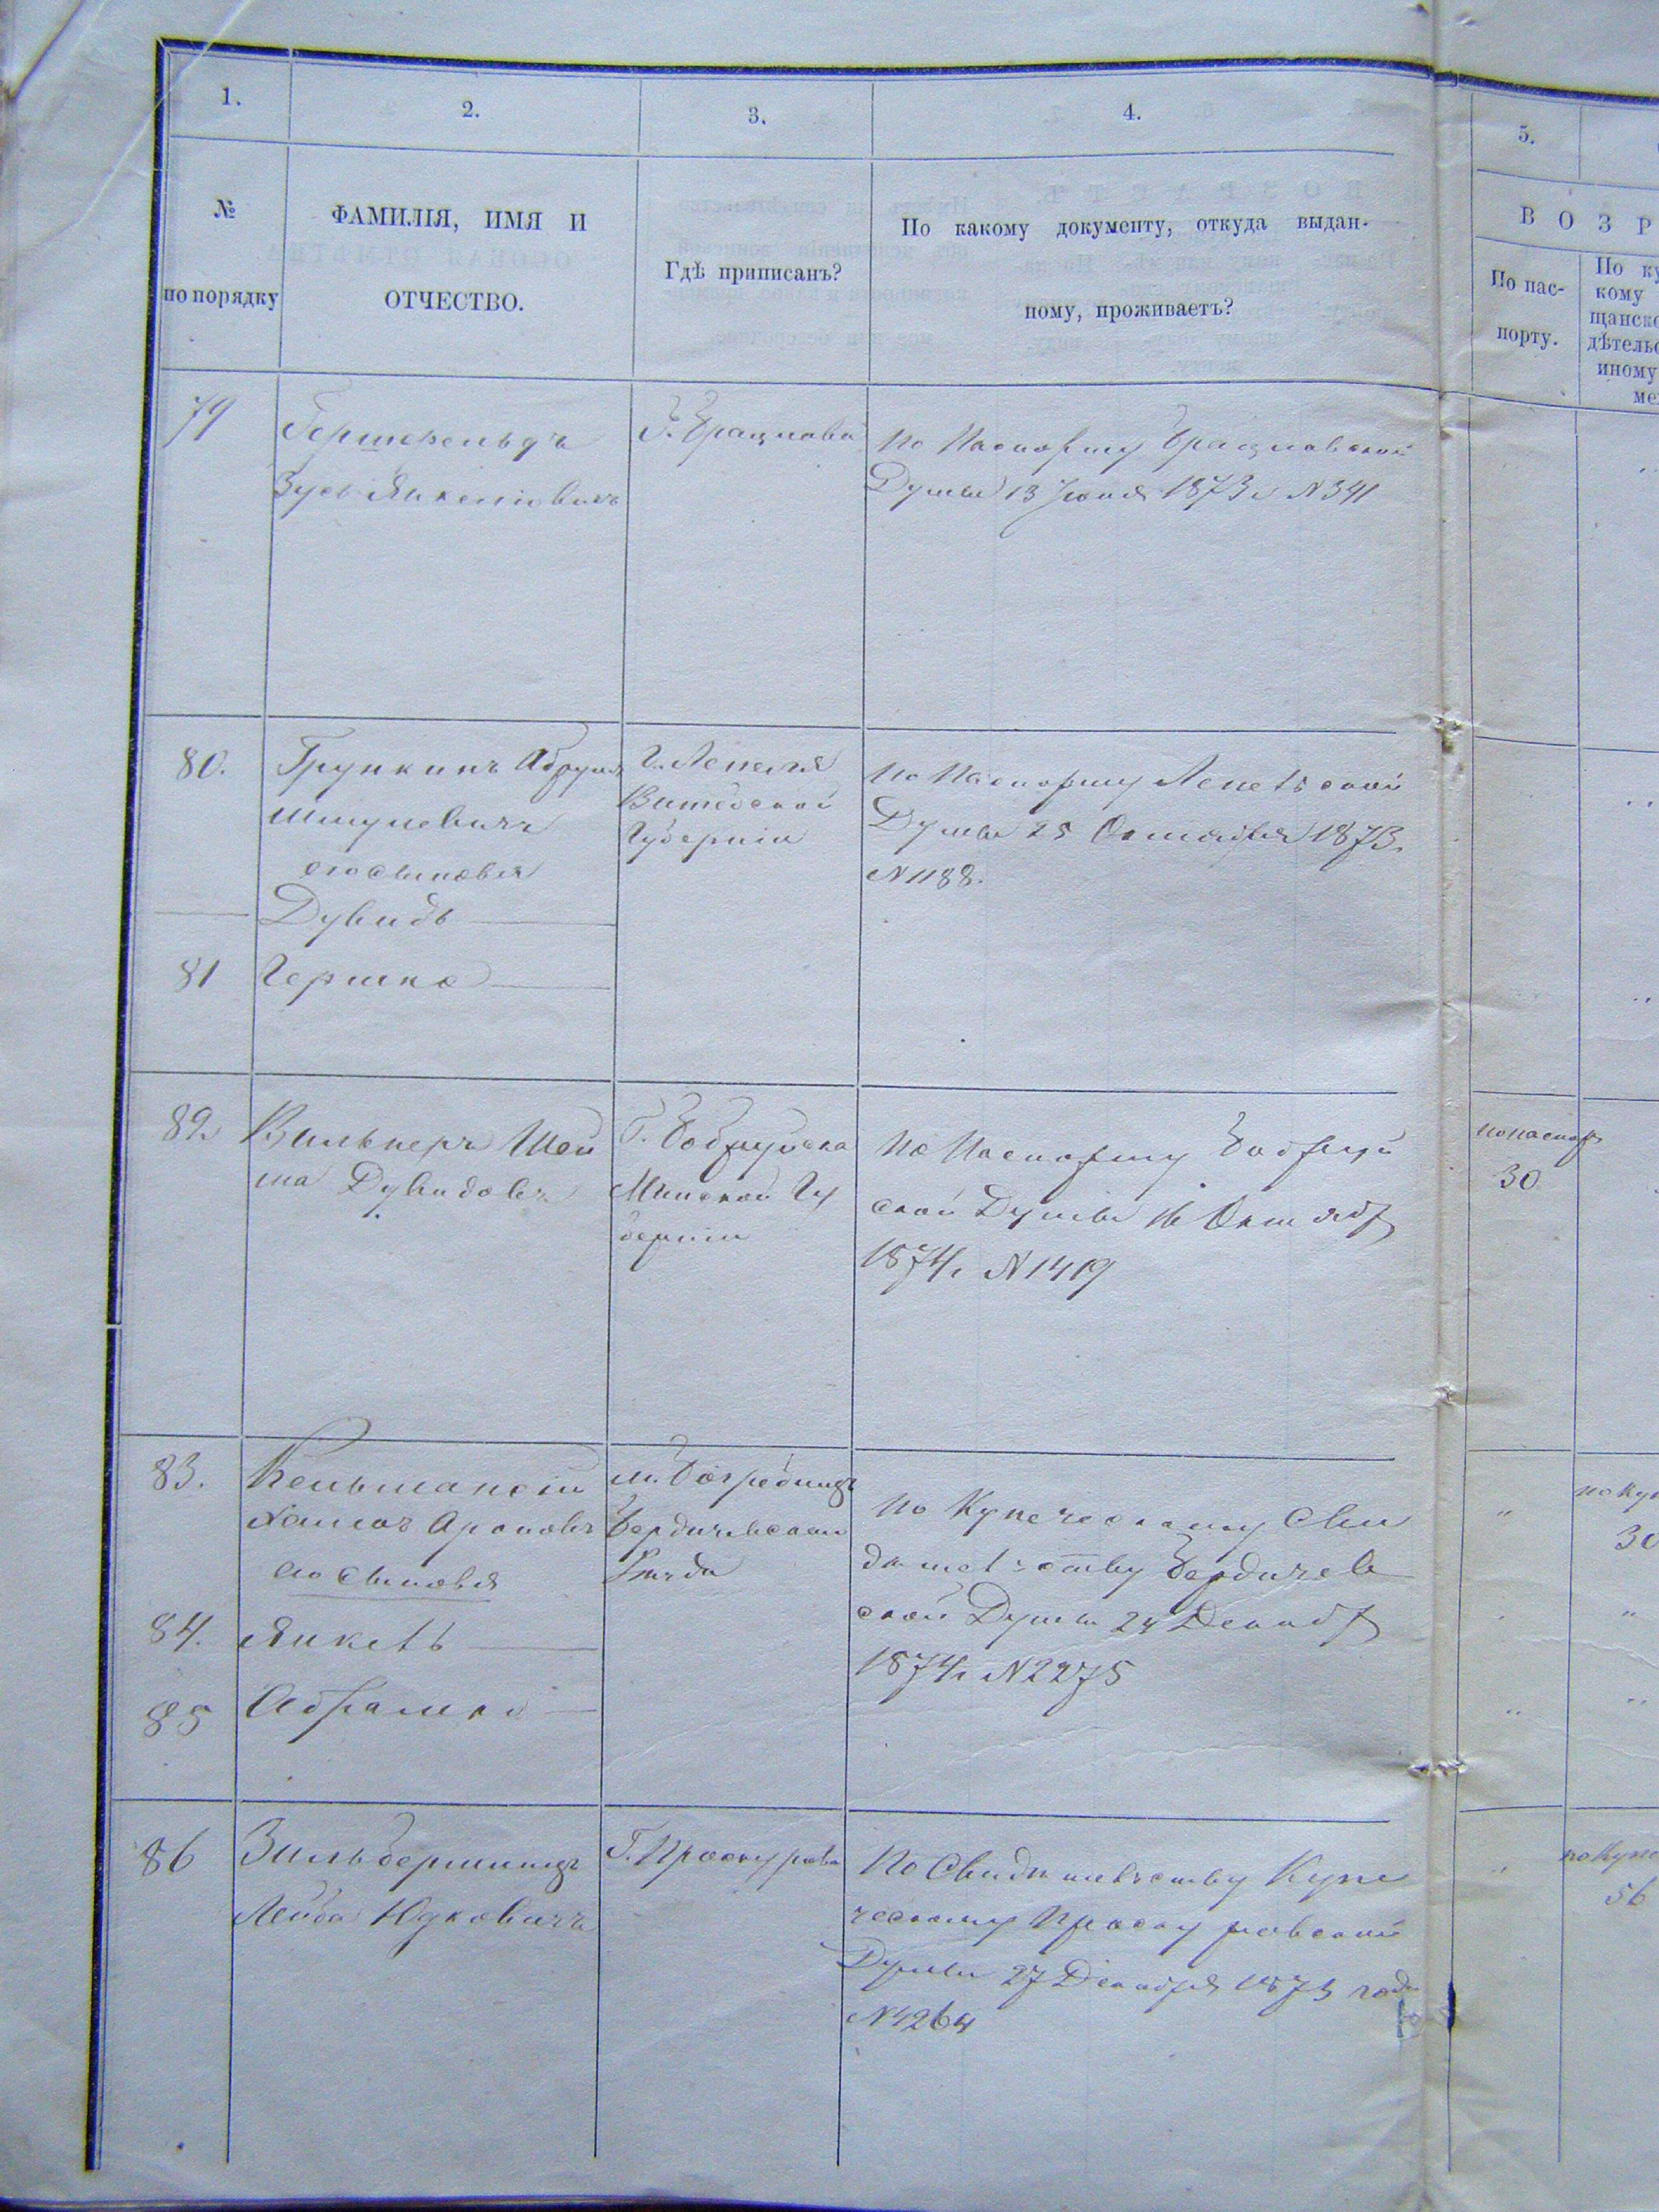 1.
2.
3.
4.
5.
№
по порядку
ФАМИЛІЯ, ИМЯ И
ОТЧЕСТВО.
Гдѣ приписанъ?
По какому документу, откуда выдан-
ному, проживаетъ?
ВОЗР
По пас-
порту.
По ку
кому
щанско
дѣтельс
иному
ме
79
Гершенельдъ
Зусь Янкеліовичъ
Г. Брацлава
По Паспорту Брацлавской
Думы 13 Іюня 1873 г N 341
80.
Грункинъ Абрумъ
Шмулевичъ
его сыновья
Дувидъ
81
Гершко
Г. Лепеля
Витебской
Губерніи
По Паспорту Лепельской
Думы 25 Октября 1873.
N 1188.
82.
Вильнеръ Шей
ма Дувидовъ
Г. Бобруйска
Минской Гу
берніи
По Паспорту Бобруй
ской Думы 16 Октябр
1874 г N 1419
по паспор
30
83.
Кельманскій
Хаимъ Ароновъ
его сыновья
84.
Янкель
85
Абрамко
м.
Бердичевскаго
Уѣзда
По Купеческому Сви
дѣтельству Бердичев
ской Думы 24 Декабр
1874 г N 2275
"
по куп
30
"
"
"
"
86
Зильберштидъ
Лейба Юдковичъ
Г. Проскурова
По Свидѣтельству Купе
ческому Проскуровской
Думы 27 Декабря 1873 года
N 4264
"
по купе
56